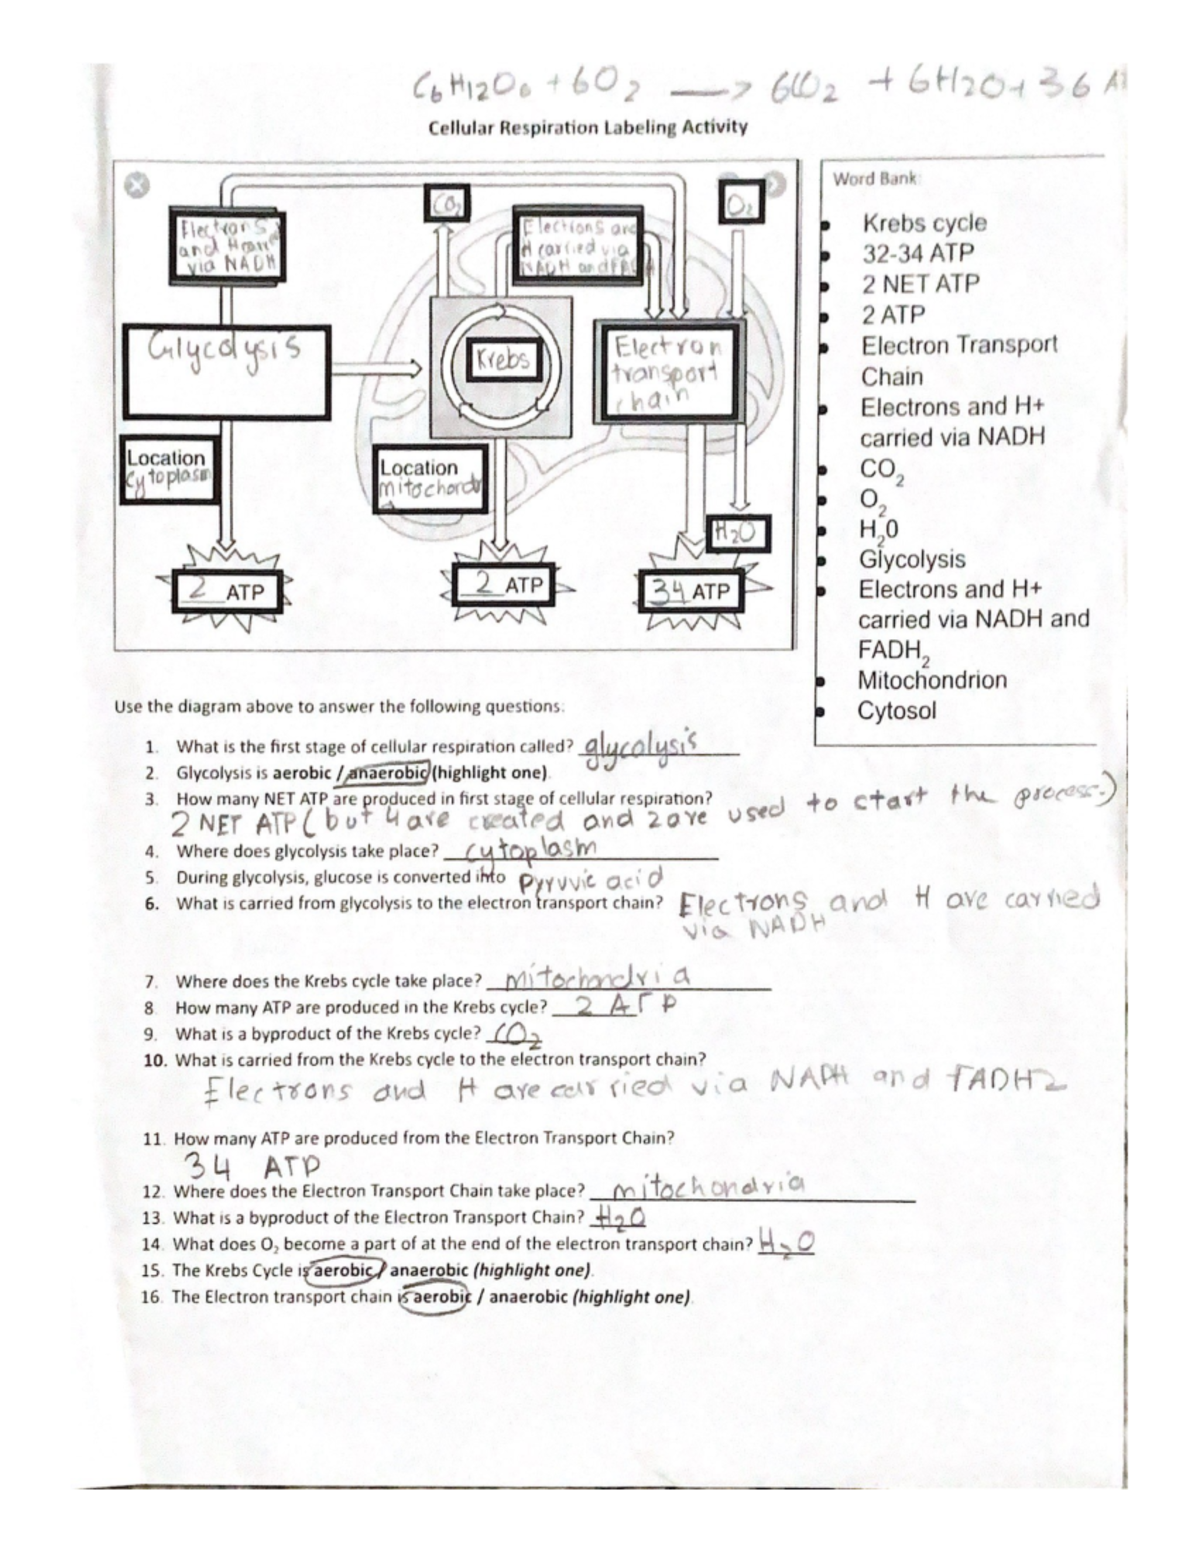 C6H12O6 + 6O2 —> 6CO2 + 6H2O + 36 AT
Cellular Respiration Labeling Activity
Electrons
and H carr
via NADH
CO2
Elections are
H carried via
NADH and FADH
O2
Glycolysis
Krebs
Electron
transport
chain
Location
Cytoplasm
Location
mitochondr
H2O
2 ATP
2 ATP
34 ATP
Word Bank:
• Krebs cycle
• 32-34 ATP
• 2 NET ATP
• 2 ATP
• Electron Transport
Chain
• Electrons and H+
carried via NADH
• CO2
• O2
• H20
• Glycolysis
• Electrons and H+
carried via NADH and
FADH2
• Mitochondrion
• Cytosol
Use the diagram above to answer the following questions:
1. What is the first stage of cellular respiration called? glycolysis
2. Glycolysis is aerobic / anaerobic (highlight one).
3. How many NET ATP are produced in first stage of cellular respiration?
2 NET ATP ( but 4 are created and 2 are used to start the process.)
4. Where does glycolysis take place? cytoplasm
5. During glycolysis, glucose is converted into pyruvic acid
6. What is carried from glycolysis to the electron transport chain? Electrons and H are carried
via NADH
7. Where does the Krebs cycle take place? mitochondria
8. How many ATP are produced in the Krebs cycle? 2 ATP
9. What is a byproduct of the Krebs cycle? CO2
10. What is carried from the Krebs cycle to the electron transport chain?
Electrons and H are carried via NADH and FADH2
11. How many ATP are produced from the Electron Transport Chain?
34 ATP
12. Where does the Electron Transport Chain take place? mitochondria
13. What is a byproduct of the Electron Transport Chain? H2O
14. What does O2 become a part of at the end of the electron transport chain? H2O
15. The Krebs Cycle is aerobic / anaerobic (highlight one).
16. The Electron transport chain is aerobic / anaerobic (highlight one).